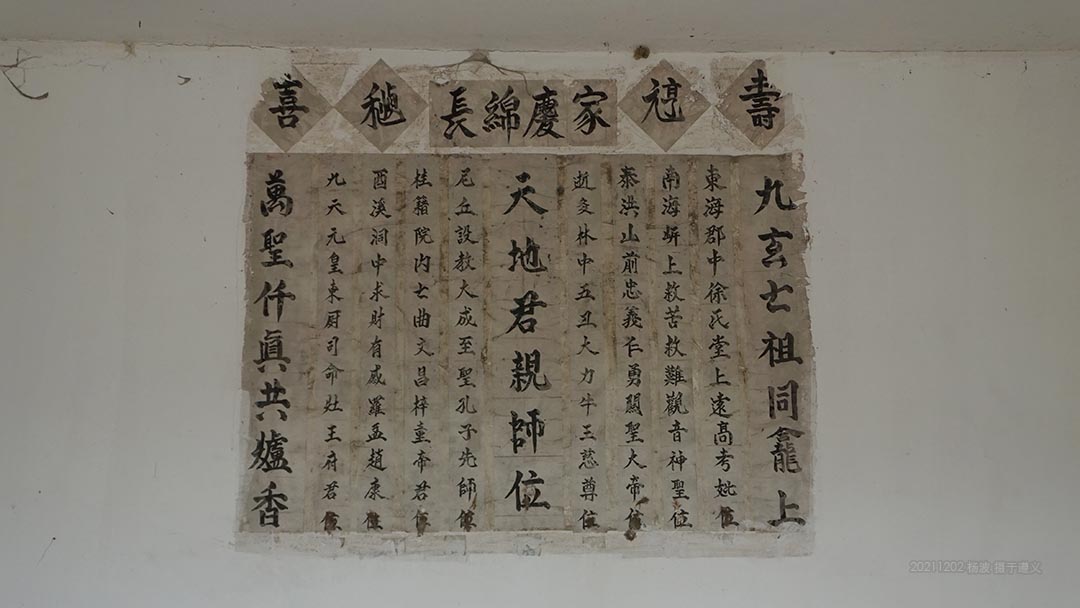 壽
家慶綿長
喜
九玄七祖同龕上
東海郡中徐氏堂上遠高考妣位
南海岍上救苦救難觀音神聖位
泰洪山前忠義仁勇關聖大帝位
逝多林中五丑大力牛三慈尊位
天地君親師位
尼丘設教大成至聖孔子先師位
桂籍院内七曲文昌梓童帝君位
酉溪洞中求財有感羅孟趙康位
九天元皇東厨司命灶王府君位
萬聖仟眞共爐香
20211202 杨波 摄于遵义